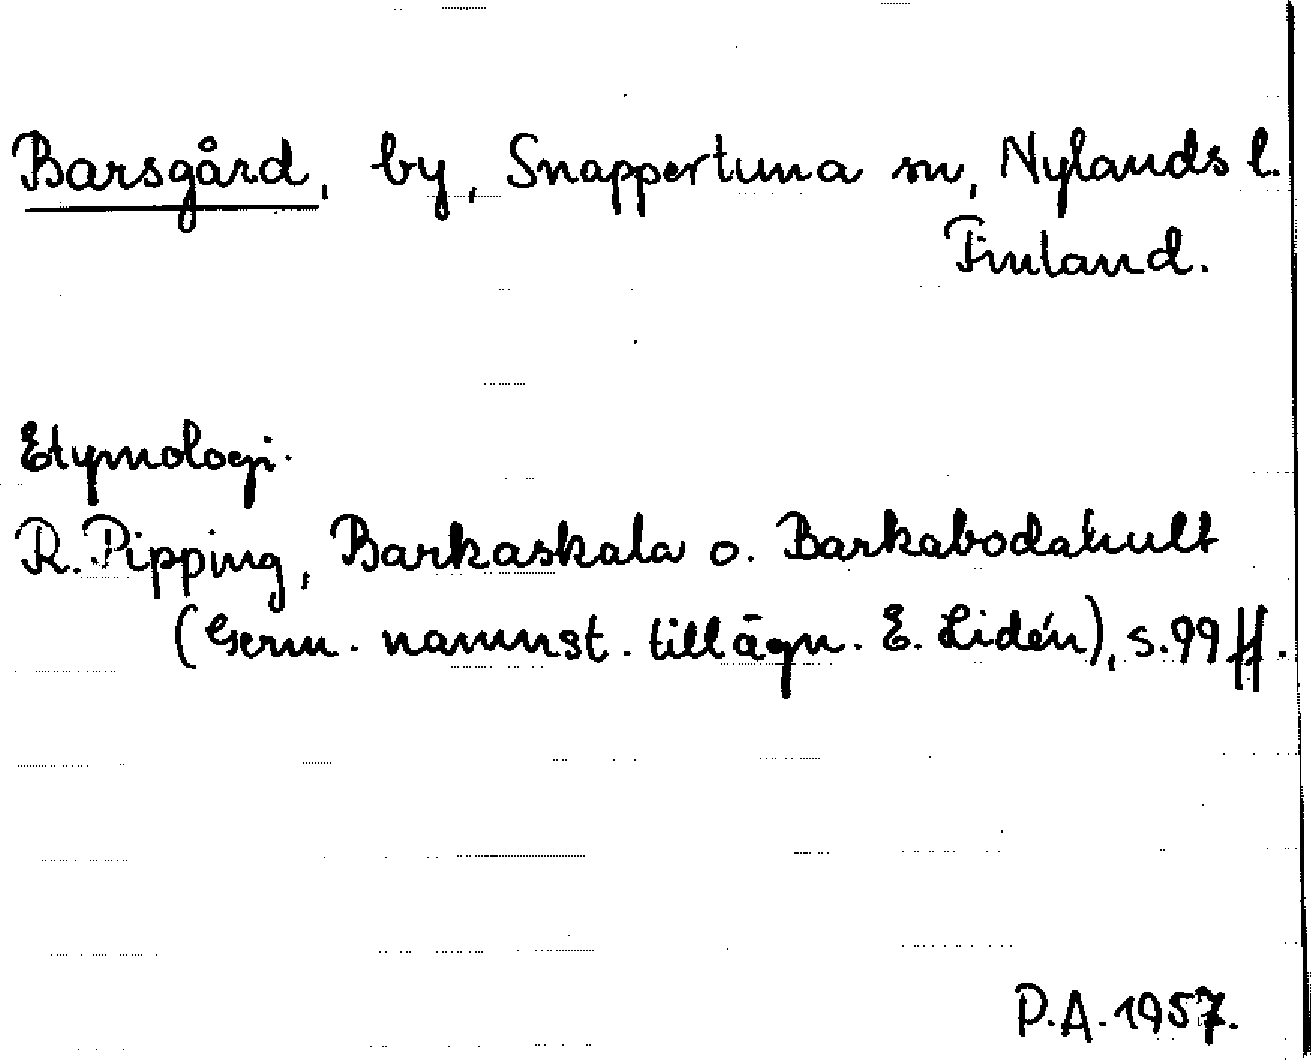 Barsgård, by, Snappertuna sn, Nylands l.
Finland.
Etymologi.
R. Pipping, Barkaskala o. Barkabodahult
(Germ. namnst. tillägn. E. Lidén), s. 99 ff.
P.A. 1957.